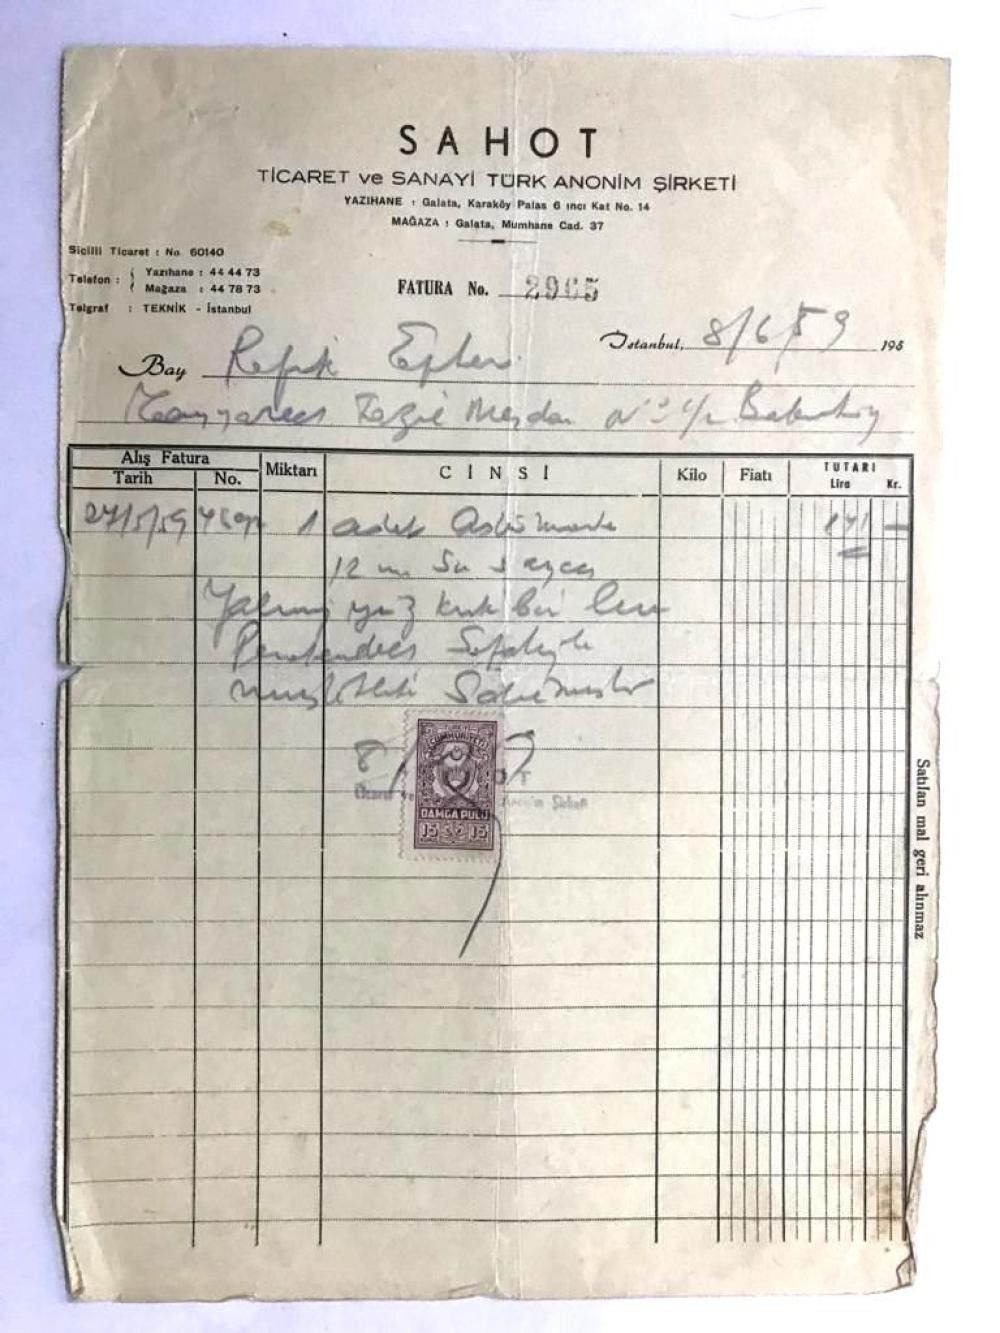 SAHOT
TİCARET ve SANAYİ TÜRK ANONİM ŞİRKETİ
YAZIHANE : Galata, Karaköy Palas 6 ıncı Kat No. 14
MAĞAZA : Galata, Mumhane Cad. 37
Sicilli Ticaret : No. 60140
Telefon : Yazıhane : 44 44 73
Mağaza : 44 78 73
Telgraf : TEKNİK - İstanbul
FATURA No. 2965
İstanbul, 8/6/59 195
Bay Refik
Meydan
Alış Fatura
Tarih No. Miktarı CİNSİ Kilo Fiatı TUTARI
Lira Kr.
27/5/59 1 adet 141 —
12 Su
Yalnız yüz kırk bir lira
CUMHURİYETİ
DAMGA PULU
15 15
Satılan mal geri alınmaz